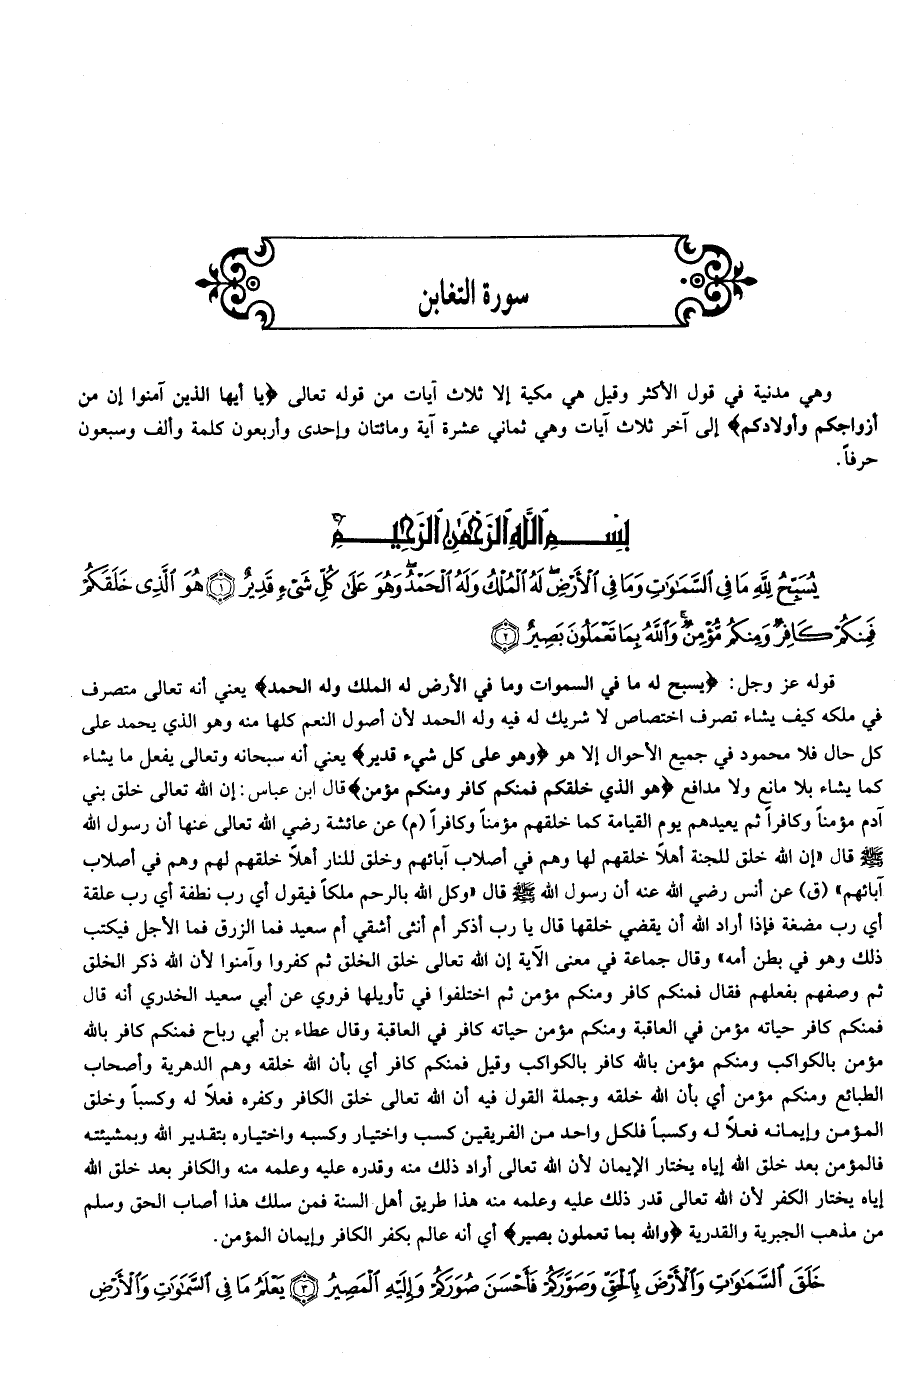 سورة التغابن
وهي مدنية في قول الأكثر وقيل هي مكية إلا ثلاث آيات من قوله تعالى ﴿يا أيها الذين آمنوا إن من
أزواجكم وأولادكم﴾ إلى آخر ثلاث آيات وهي ثماني عشرة آية ومائتان وإحدى وأربعون كلمة وألف وسبعون
حرفاً.
بِسْمِ اللَّهِ الرَّحْمَٰنِ الرَّحِيمِ
يُسَبِّحُ لِلَّهِ مَا فِي السَّمَٰوَٰتِ وَمَا فِي الْأَرْضِ ۖ لَهُ الْمُلْكُ وَلَهُ الْحَمْدُ ۖ وَهُوَ عَلَىٰ كُلِّ شَيْءٍ قَدِيرٌ ﴿١﴾ هُوَ الَّذِي خَلَقَكُمْ
فَمِنكُمْ كَافِرٌ وَمِنكُم مُّؤْمِنٌ ۚ وَاللَّهُ بِمَا تَعْمَلُونَ بَصِيرٌ ﴿٢﴾
قوله عز وجل: ﴿يسبح له ما في السموات وما في الأرض له الملك وله الحمد﴾ يعني أنه تعالى متصرف
في ملكه كيف يشاء تصرف اختصاص لا شريك له فيه وله الحمد لأن أصول النعم كلها منه وهو الذي يحمد على
كل حال فلا محمود في جميع الأحوال إلا هو ﴿وهو على كل شيء قدير﴾ يعني أنه سبحانه وتعالى يفعل ما يشاء
كما يشاء بلا مانع ولا مدافع ﴿هو الذي خلقكم فمنكم كافر ومنكم مؤمن﴾ قال ابن عباس: إن الله تعالى خلق بني
آدم مؤمناً وكافراً ثم يعيدهم يوم القيامة كما خلقهم مؤمناً وكافراً (م) عن عائشة رضي الله تعالى عنها أن رسول الله
ﷺ قال «إن الله خلق للجنة أهلاً خلقهم لها وهم في أصلاب آبائهم وخلق للنار أهلاً خلقهم لهم وهم في أصلاب
آبائهم» (ق) عن أنس رضي الله عنه أن رسول الله ﷺ قال «وكل الله بالرحم ملكاً فيقول أي رب نطفة أي رب علقة
أي رب مضغة فإذا أراد الله أن يقضي خلقها قال يا رب أذكر أم أنثى أشقي أم سعيد فما الزرق فما الأجل فيكتب
ذلك وهو في بطن أمه» وقال جماعة في معنى الآية إن الله تعالى خلق الخلق ثم كفروا وآمنوا لأن الله ذكر الخلق
ثم وصفهم بفعلهم فقال فمنكم كافر ومنكم مؤمن ثم اختلفوا في تأويلها فروي عن أبي سعيد الخدري أنه قال
فمنكم كافر حياته مؤمن في العاقبة ومنكم مؤمن حياته كافر في العاقبة وقال عطاء بن أبي رباح فمنكم كافر بالله
مؤمن بالكواكب ومنكم مؤمن بالله كافر بالكواكب وقيل فمنكم كافر أي بأن الله خلقه وهم الدهرية وأصحاب
الطبائع ومنكم مؤمن أي بأن الله خلقه وجملة القول فيه أن الله تعالى خلق الكافر وكفره فعلاً له وكسباً وخلق
المؤمن وإيمانه فعلاً له وكسباً فلكل واحد من الفريقين كسب واختيار وكسبه واختياره بتقدير الله وبمشيئته
فالمؤمن بعد خلق الله إياه يختار الإيمان لأن الله تعالى أراد ذلك منه وقدره عليه وعلمه منه والكافر بعد خلق الله
إياه يختار الكفر لأن الله تعالى قدر ذلك عليه وعلمه منه هذا طريق أهل السنة فمن سلك هذا أصاب الحق وسلم
من مذهب الجبرية والقدرية ﴿والله بما تعملون بصير﴾ أي أنه عالم بكفر الكافر وإيمان المؤمن.
خَلَقَ السَّمَٰوَٰتِ وَالْأَرْضَ بِالْحَقِّ وَصَوَّرَكُمْ فَأَحْسَنَ صُوَرَكُمْ وَإِلَيْهِ الْمَصِيرُ ﴿٣﴾ يَعْلَمُ مَا فِي السَّمَٰوَٰتِ وَالْأَرْضِ